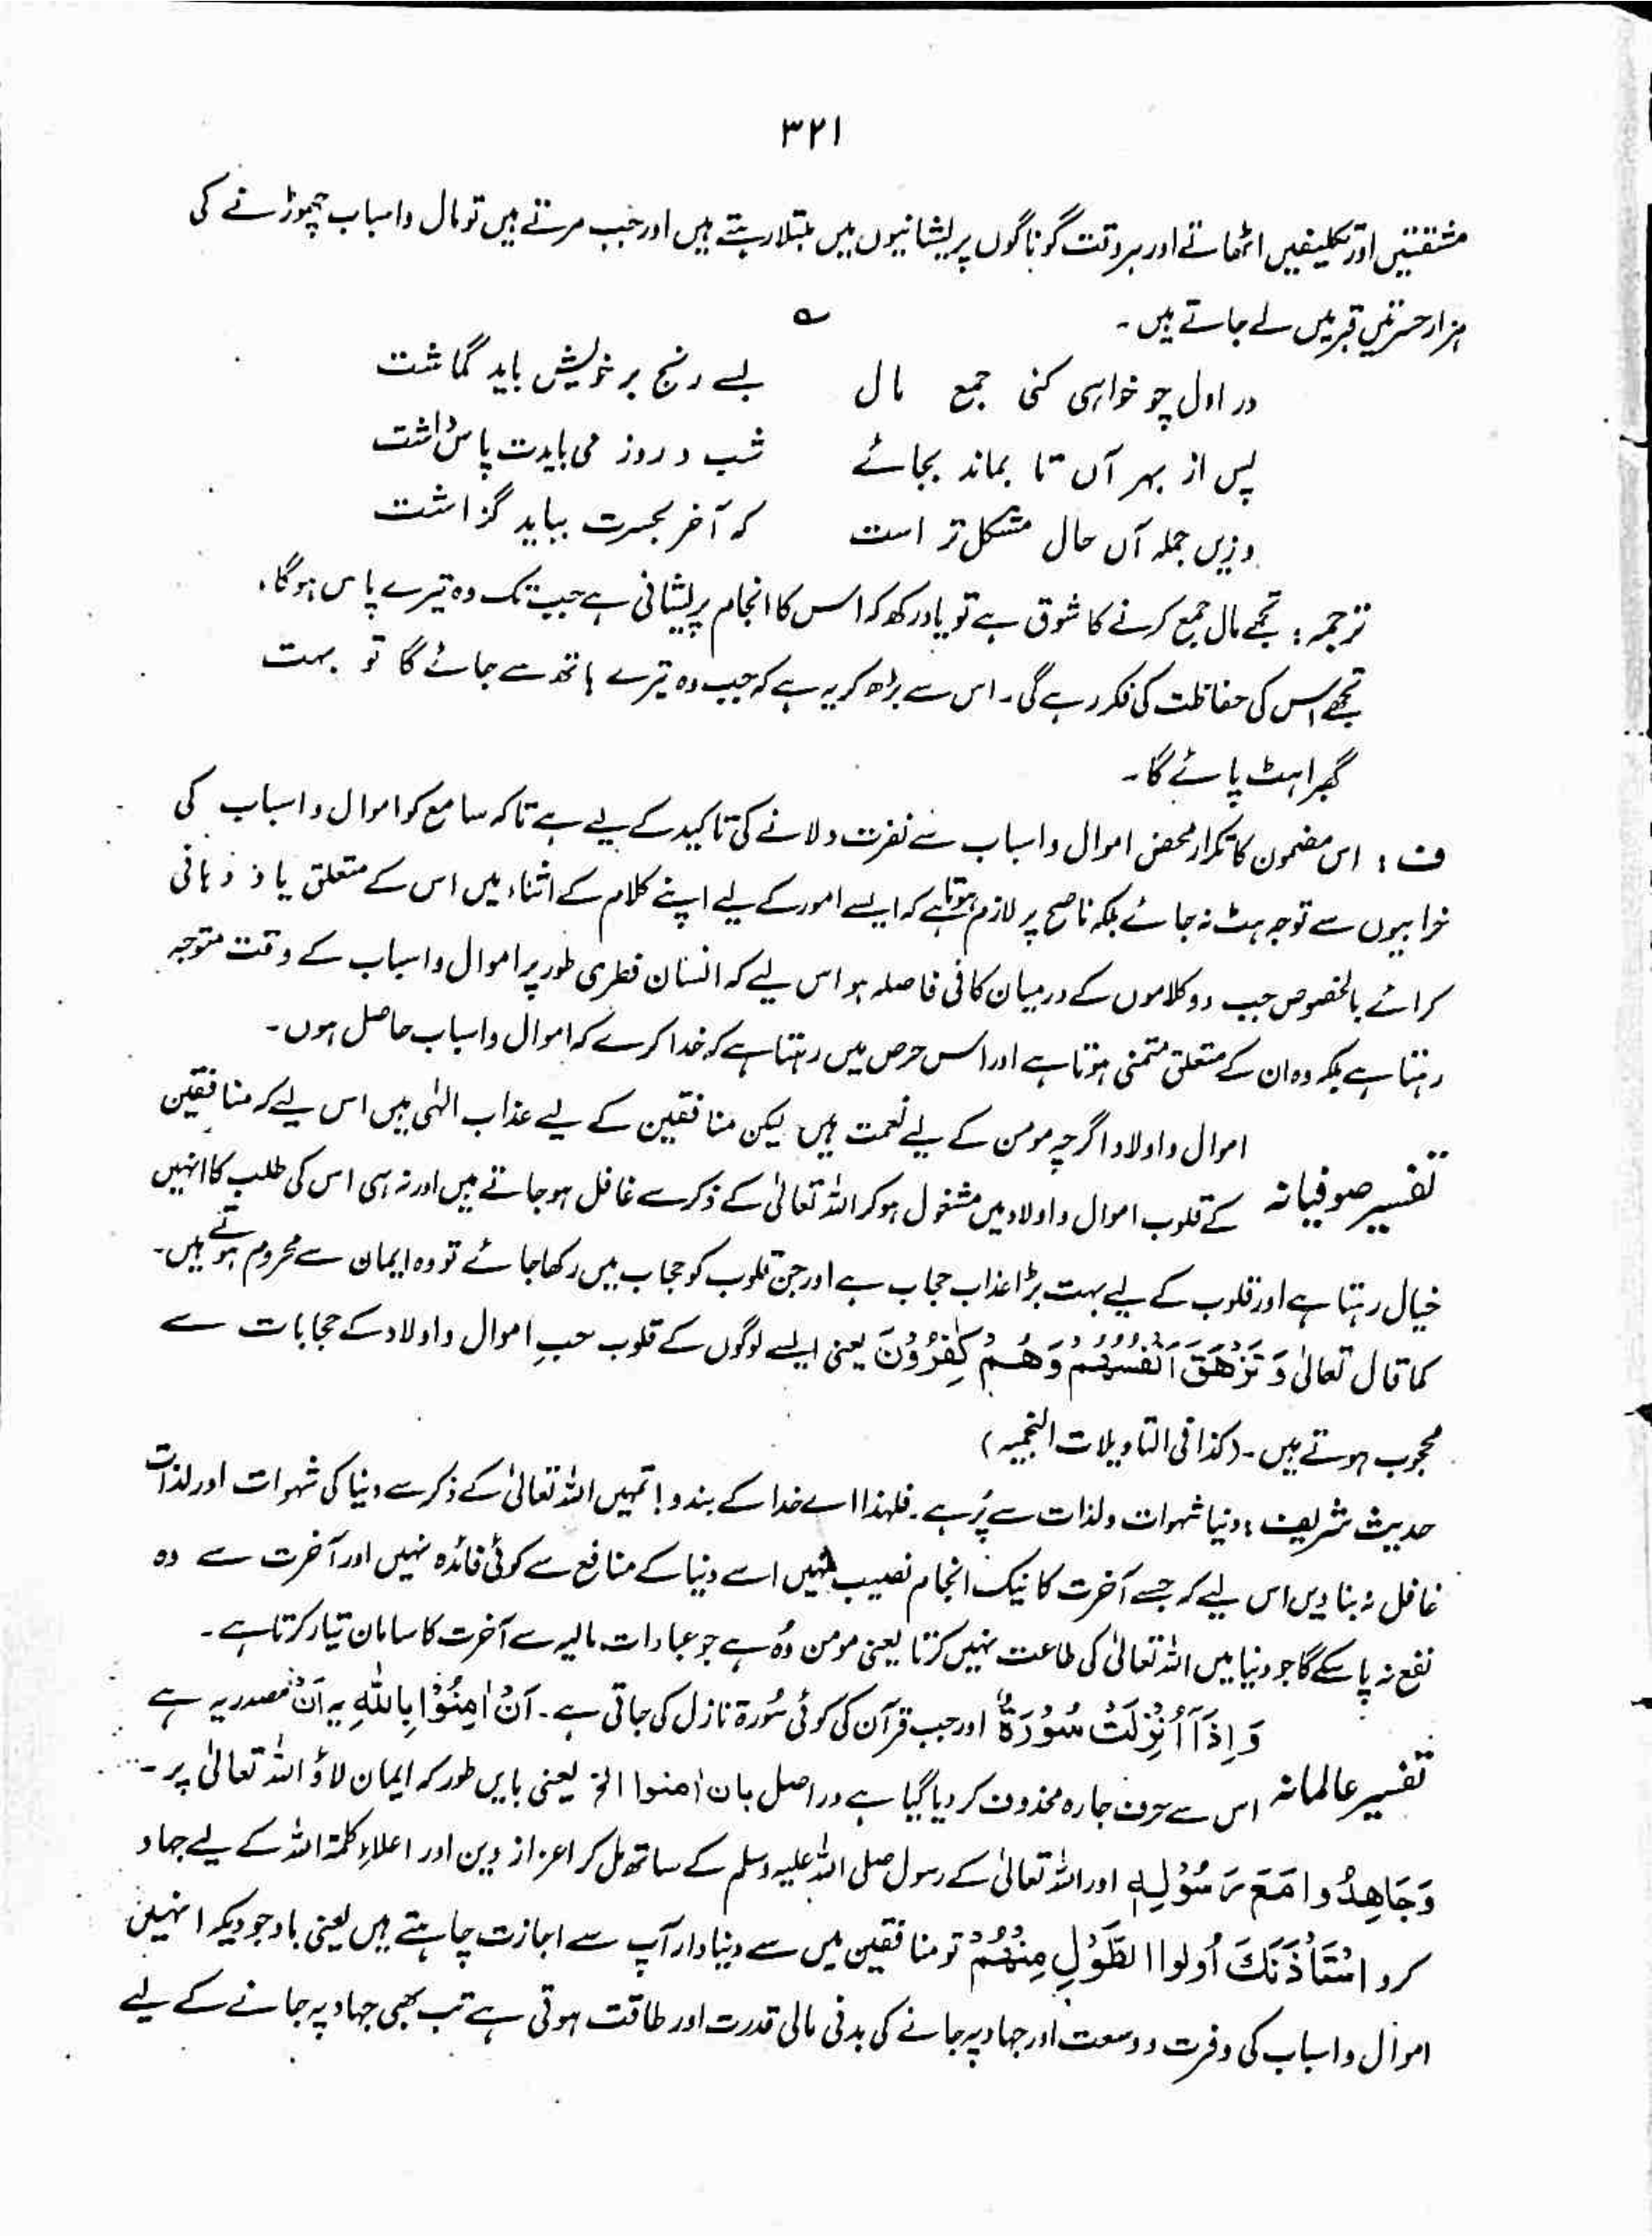 ۳۲۱
مشقتیں اور تکلیفیں اٹھاتے اور ہر وقت گوناگوں پریشانیوں میں مبتلا رہتے ہیں اور جب مرتے ہیں تو مال و اسباب چھوڑنے کی
ہزار حسرتیں قبر میں لے جاتے ہیں۔ ؎
در اول چو خواہی کنی جمع مال بسے رنج بر خویش باید گماشت
پس از بہر آں تا بماند بجائے شب و روز می بایدت پاس داشت
وزیں جملہ آں حال مشکل تر است کہ آخر بحسرت بباید گزاشت
ترجمہ: تجھے مال جمع کرنے کا شوق ہے تو یاد رکھ کہ اس کا انجام پریشانی ہے جب تک وہ تیرے پاس ہوگا،
تجھے اس کی حفاظت کی فکر رہے گی۔ اس سے بڑھ کر یہ ہے کہ جب وہ تیرے ہاتھ سے جائے گا تو بہت
گھبراہٹ پائے گا۔
ف: اس مضمون کا تکرار محض اموال و اسباب سے نفرت دلانے کی تاکید کے لیے ہے تاکہ سامع کو اموال و اسباب کی
خرابیوں سے توجہ ہٹ نہ جائے بلکہ ناصح پر لازم ہوتا ہے کہ ایسے امور کے لیے اپنے کلام کے اثناء میں اس کے متعلق یاد دہانی
کرائے بالخصوص جب دو کلاموں کے درمیان کافی فاصلہ ہو اس لیے کہ انسان فطری طور پر اموال و اسباب کے وقت متوجہ
رہتا ہے بلکہ وہ ان کے متعلق متمنی ہوتا ہے اور اس حرص میں رہتا ہے کہ خدا کرے کہ اموال و اسباب حاصل ہوں۔
تفسیر صوفیانہ اموال و اولاد اگرچہ مومن کے لیے نعمت ہیں لیکن منافقین کے لیے عذاب الٰہی ہیں اس لیے کہ منافقین
کے قلوب اموال و اولاد میں مشغول ہو کر اللہ تعالیٰ کے ذکر سے غافل ہو جاتے ہیں اور نہ ہی اس کی طلب کا انہیں
خیال رہتا ہے اور قلوب کے لیے بہت بڑا عذاب حجاب ہے اور جن قلوب کو حجاب میں رکھا جائے تو وہ ایمان سے محروم ہوتے ہیں۔
کما قال تعالیٰ وَ تَزْھَقَ اَنْفُسُھُمْ وَھُمْ کٰفِرُوْنَ یعنی ایسے لوگوں کے قلوب حبِ اموال و اولاد کے حجابات سے
محجوب ہوتے ہیں۔ (کذا فی التاویلات النجمیہ)
حدیث شریف: دنیا شہوات و لذات سے پُر ہے۔ فلہٰذا اے خدا کے بندو! تمہیں اللہ تعالیٰ کے ذکر سے دنیا کی شہوات اور لذات
غافل نہ بنا دیں اس لیے کہ جسے آخرت کا نیک انجام نصیب نہیں اسے دنیا کے منافع سے کوئی فائدہ نہیں اور آخرت سے وہ
نفع نہ پا سکے گا جو دنیا میں اللہ تعالیٰ کی طاعت نہیں کرتا یعنی مومن وُہ ہے جو عبادات مالیہ سے آخرت کا سامان تیار کرتا ہے۔
تفسیر عالمانہ وَ اِذَآ اُنْزِلَتْ سُوْرَۃٌ اور جب قرآن کی کوئی سُورۃ نازل کی جاتی ہے۔ اَنْ اٰمِنُوْا بِاللّٰہِ یہ اَنْ مصدریہ ہے
اس سے حرف جارہ محذوف کر دیا گیا ہے در اصل بان اٰمنوا الخ یعنی بایں طور کہ ایمان لاؤ اللہ تعالیٰ پر۔
وَجَاھِدُوا مَعَ رَسُوْلِہٖ اور اللہ تعالیٰ کے رسول صلی اللہ علیہ وسلم کے ساتھ مل کر اعزاز دین اور اعلاءِ کلمۃ اللہ کے لیے جہاد
کرو اسْتَاْذَنَکَ اُولوا الطَّوْلِ مِنْھُمْ تو منافقین میں سے دنیادار آپ سے اجازت چاہتے ہیں یعنی باوجودیکہ انہیں
اموال و اسباب کی وفرت و وسعت اور جہاد پہ جانے کی بدنی مالی قدرت اور طاقت ہوتی ہے تب بھی جہاد پہ جانے کے لیے